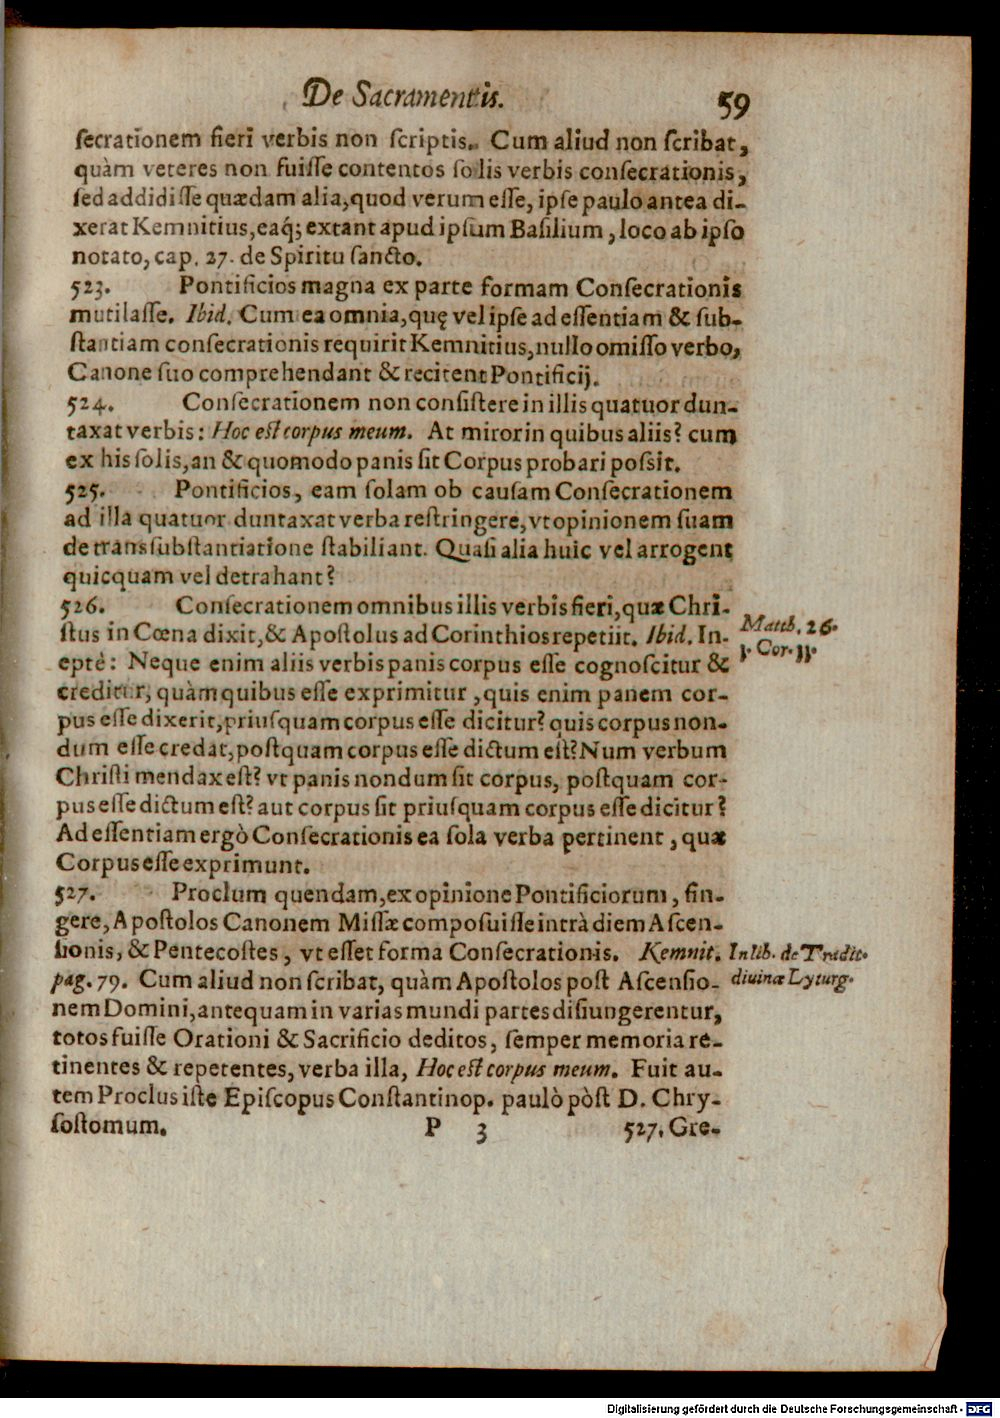 De Sacramentis. 59
ſecrationem fieri verbis non ſcriptis. Cum aliud non ſcribat,
quàm veteres non fuiſſe contentos ſolis verbis conſecrationis,
ſed addidiſſe quædam alia, quod verum eſſe, ipſe paulo antea di-
xerat Kemnitius, eaq́; extant apud ipſum Baſilium, loco ab ipſo
notato, cap. 27. de Spiritu ſancto.
523. Pontificios magna ex parte formam Conſecrationis
mutilaſſe. Ibid. Cum ea omnia, quę vel ipſe ad eſſentiam & ſub-
ſtantiam conſecrationis requirit Kemnitius, nullo omiſſo verbo,
Canone ſuo comprehendant & recitent Pontificij.
524. Conſecrationem non conſiſtere in illis quatuor dun-
taxat verbis: Hoc eſt corpus meum. At miror in quibus aliis? cum
ex his ſolis, an & quomodo panis ſit Corpus probari poſſit.
525. Pontificios, eam ſolam ob cauſam Conſecrationem
ad illa quatuor duntaxat verba reſtringere, vt opinionem ſuam
de transſubſtantiatione ſtabiliant. Quaſi alia huic vel arrogent
quicquam vel detrahant?
526. Conſecrationem omnibus illis verbis fieri, quæ Chri-
ſtus in Cœna dixit, & Apoſtolus ad Corinthios repetiit. Ibid. In-
eptè: Neque enim aliis verbis panis corpus eſſe cognoſcitur &
creditur, quàm quibus eſſe exprimitur, quis enim panem cor-
pus eſſe dixerit, priuſquam corpus eſſe dicitur? quis corpus non-
dum eſſe credat, poſtquam corpus eſſe dictum eſt? Num verbum
Chriſti mendax eſt? vt panis nondum ſit corpus, poſtquam cor-
pus eſſe dictum eſt? aut corpus ſit priuſquam corpus eſſe dicitur?
Ad eſſentiam ergò Conſecrationis ea ſola verba pertinent, quæ
Corpus eſſe exprimunt.
Matth. 26.
1. Cor. 11.
527. Proclum quendam, ex opinione Pontificiorum, fin-
gere, Apoſtolos Canonem Miſſæ compoſuiſſe intrà diem Aſcen-
ſionis, & Pentecoſtes, vt eſſet forma Conſecrationis. Kemnit.
pag. 79. Cum aliud non ſcribat, quàm Apoſtolos poſt Aſcenſio-
nem Domini, antequam in varias mundi partes diſiungerentur,
totos fuiſſe Orationi & Sacrificio deditos, ſemper memoria re-
tinentes & repetentes, verba illa, Hoc eſt corpus meum. Fuit au-
tem Proclus iſte Epiſcopus Conſtantinop. paulò pòſt D. Chry-
ſoſtomum.
In lib. de Tradit.
diuinæ Lyturg.
P 3 527. Gre-
Digitalisierung gefördert durch die Deutsche Forschungsgemeinschaft - DFG